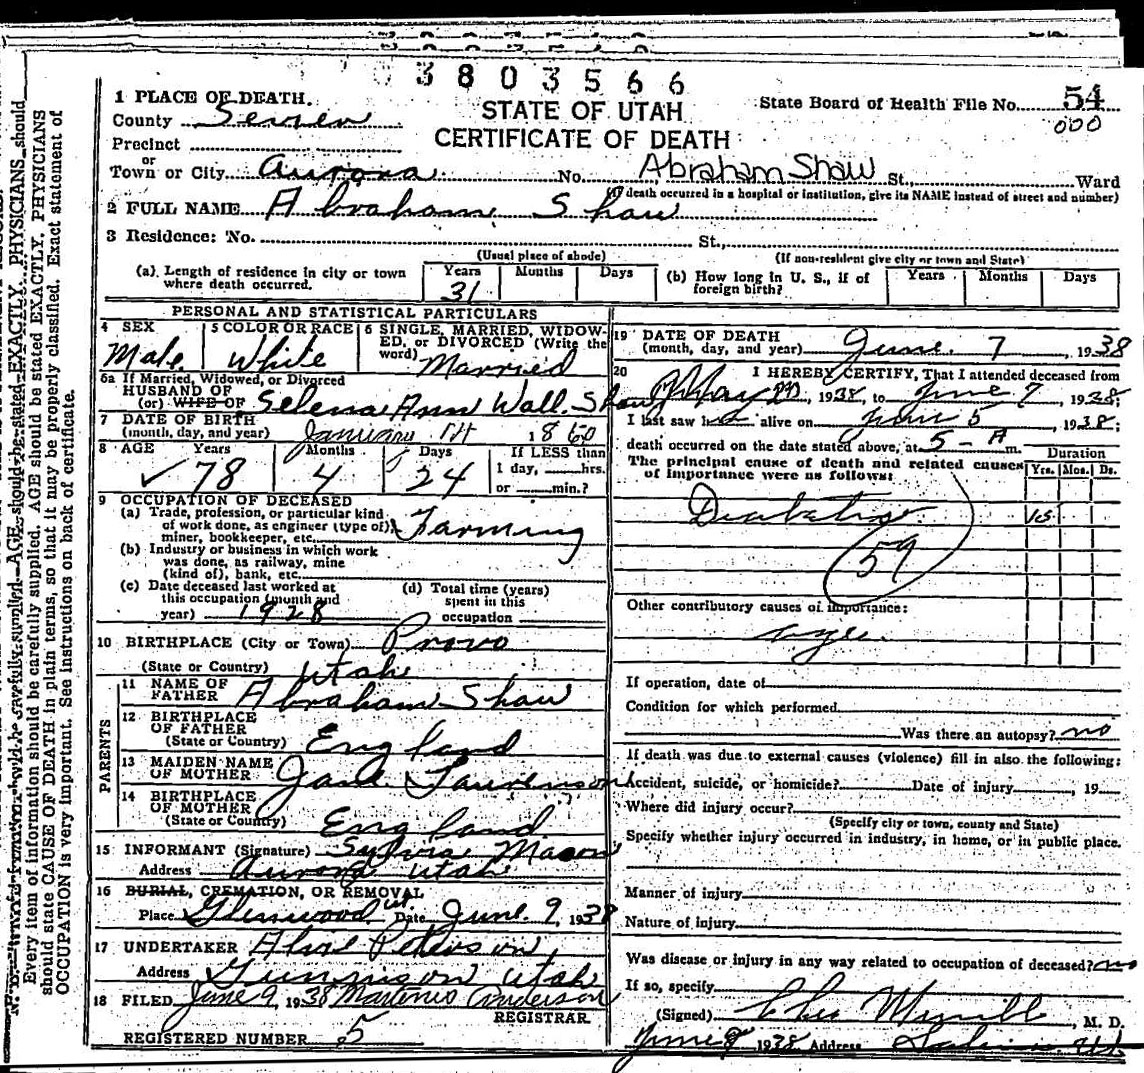 3803566
1 PLACE OF DEATH.
STATE OF UTAH
State Board of Health File No. 54
County Sevier
CERTIFICATE OF DEATH
000
Precinct
or
Town or City Aurora No. Abraham Shaw St., Ward
(If death occurred in a hospital or institution, give its NAME instead of street and number)
2 FULL NAME Abraham Shaw
3 Residence: No. St.,
(Usual place of abode) (If non-resident give city or town and State)
(a). Length of residence in city or town where death occurred. Years 31 Months Days
(b) How long in U. S., if of foreign birth? Years Months Days
PERSONAL AND STATISTICAL PARTICULARS
4 SEX Male
5 COLOR OR RACE White
6 SINGLE, MARRIED, WIDOWED, or DIVORCED (Write the word) Married
6a If Married, Widowed, or Divorced
HUSBAND OF
(or) WIFE OF Selena Ann Wall Shaw
7 DATE OF BIRTH
(month, day, and year) January 1860
8 AGE Years 78 Months 4 Days 24 If LESS than
1 day, hrs.
or min.?
9 OCCUPATION OF DECEASED
(a) Trade, profession, or particular kind
of work done, as engineer (type of)
miner, bookkeeper, etc. Farming
(b) Industry or business in which work
was done, as railway, mine
(kind of), bank, etc.
(c) Date deceased last worked at
this occupation (month and
year) 1928
(d) Total time (years)
spent in this
occupation
10 BIRTHPLACE (City or Town) Provo
(State or Country) Utah
PARENTS
11 NAME OF
FATHER Abraham Shaw
12 BIRTHPLACE
OF FATHER
(State or Country) England
13 MAIDEN NAME
OF MOTHER Jane
14 BIRTHPLACE
OF MOTHER
(State or Country) England
15 INFORMANT (Signature) Sylvia Mason
Address Aurora Utah
16 BURIAL, CREMATION, OR REMOVAL
Place Glenwood Ut. Date June 9, 1938
17 UNDERTAKER Peterson
Address Gunnison Utah
18 FILED June 9, 1938 Martinus Anderson
REGISTRAR
REGISTERED NUMBER 5
19 DATE OF DEATH
(month, day, and year) June 7, 1938
20 I HEREBY CERTIFY, That I attended deceased from
May, 1938, to June 7, 1938;
I last saw h alive on June 5, 1938;
death occurred on the date stated above, at 5-A m.
The principal cause of death and related causes
of importance were as follows:
Duration
Yrs. Mos. Ds.
Diabetis
59
Other contributory causes of importance:
age
If operation, date of
Condition for which performed
Was there an autopsy? no
If death was due to external causes (violence) fill in also the following:
Accident, suicide, or homicide? Date of injury, 19
Where did injury occur?
(Specify city or town, county and State)
Specify whether injury occurred in industry, in home, or in public place.
Manner of injury
Nature of injury
Was disease or injury in any way related to occupation of deceased? no
If so, specify
(Signed) Merrill, M. D.
June 9 1938 Address Salina Ut
Every item of information should be carefully supplied. AGE should be stated EXACTLY. PHYSICIANS
should state CAUSE OF DEATH in plain terms, so that it may be properly classified. Exact statement of
OCCUPATION is very important. See instructions on back of certificate.